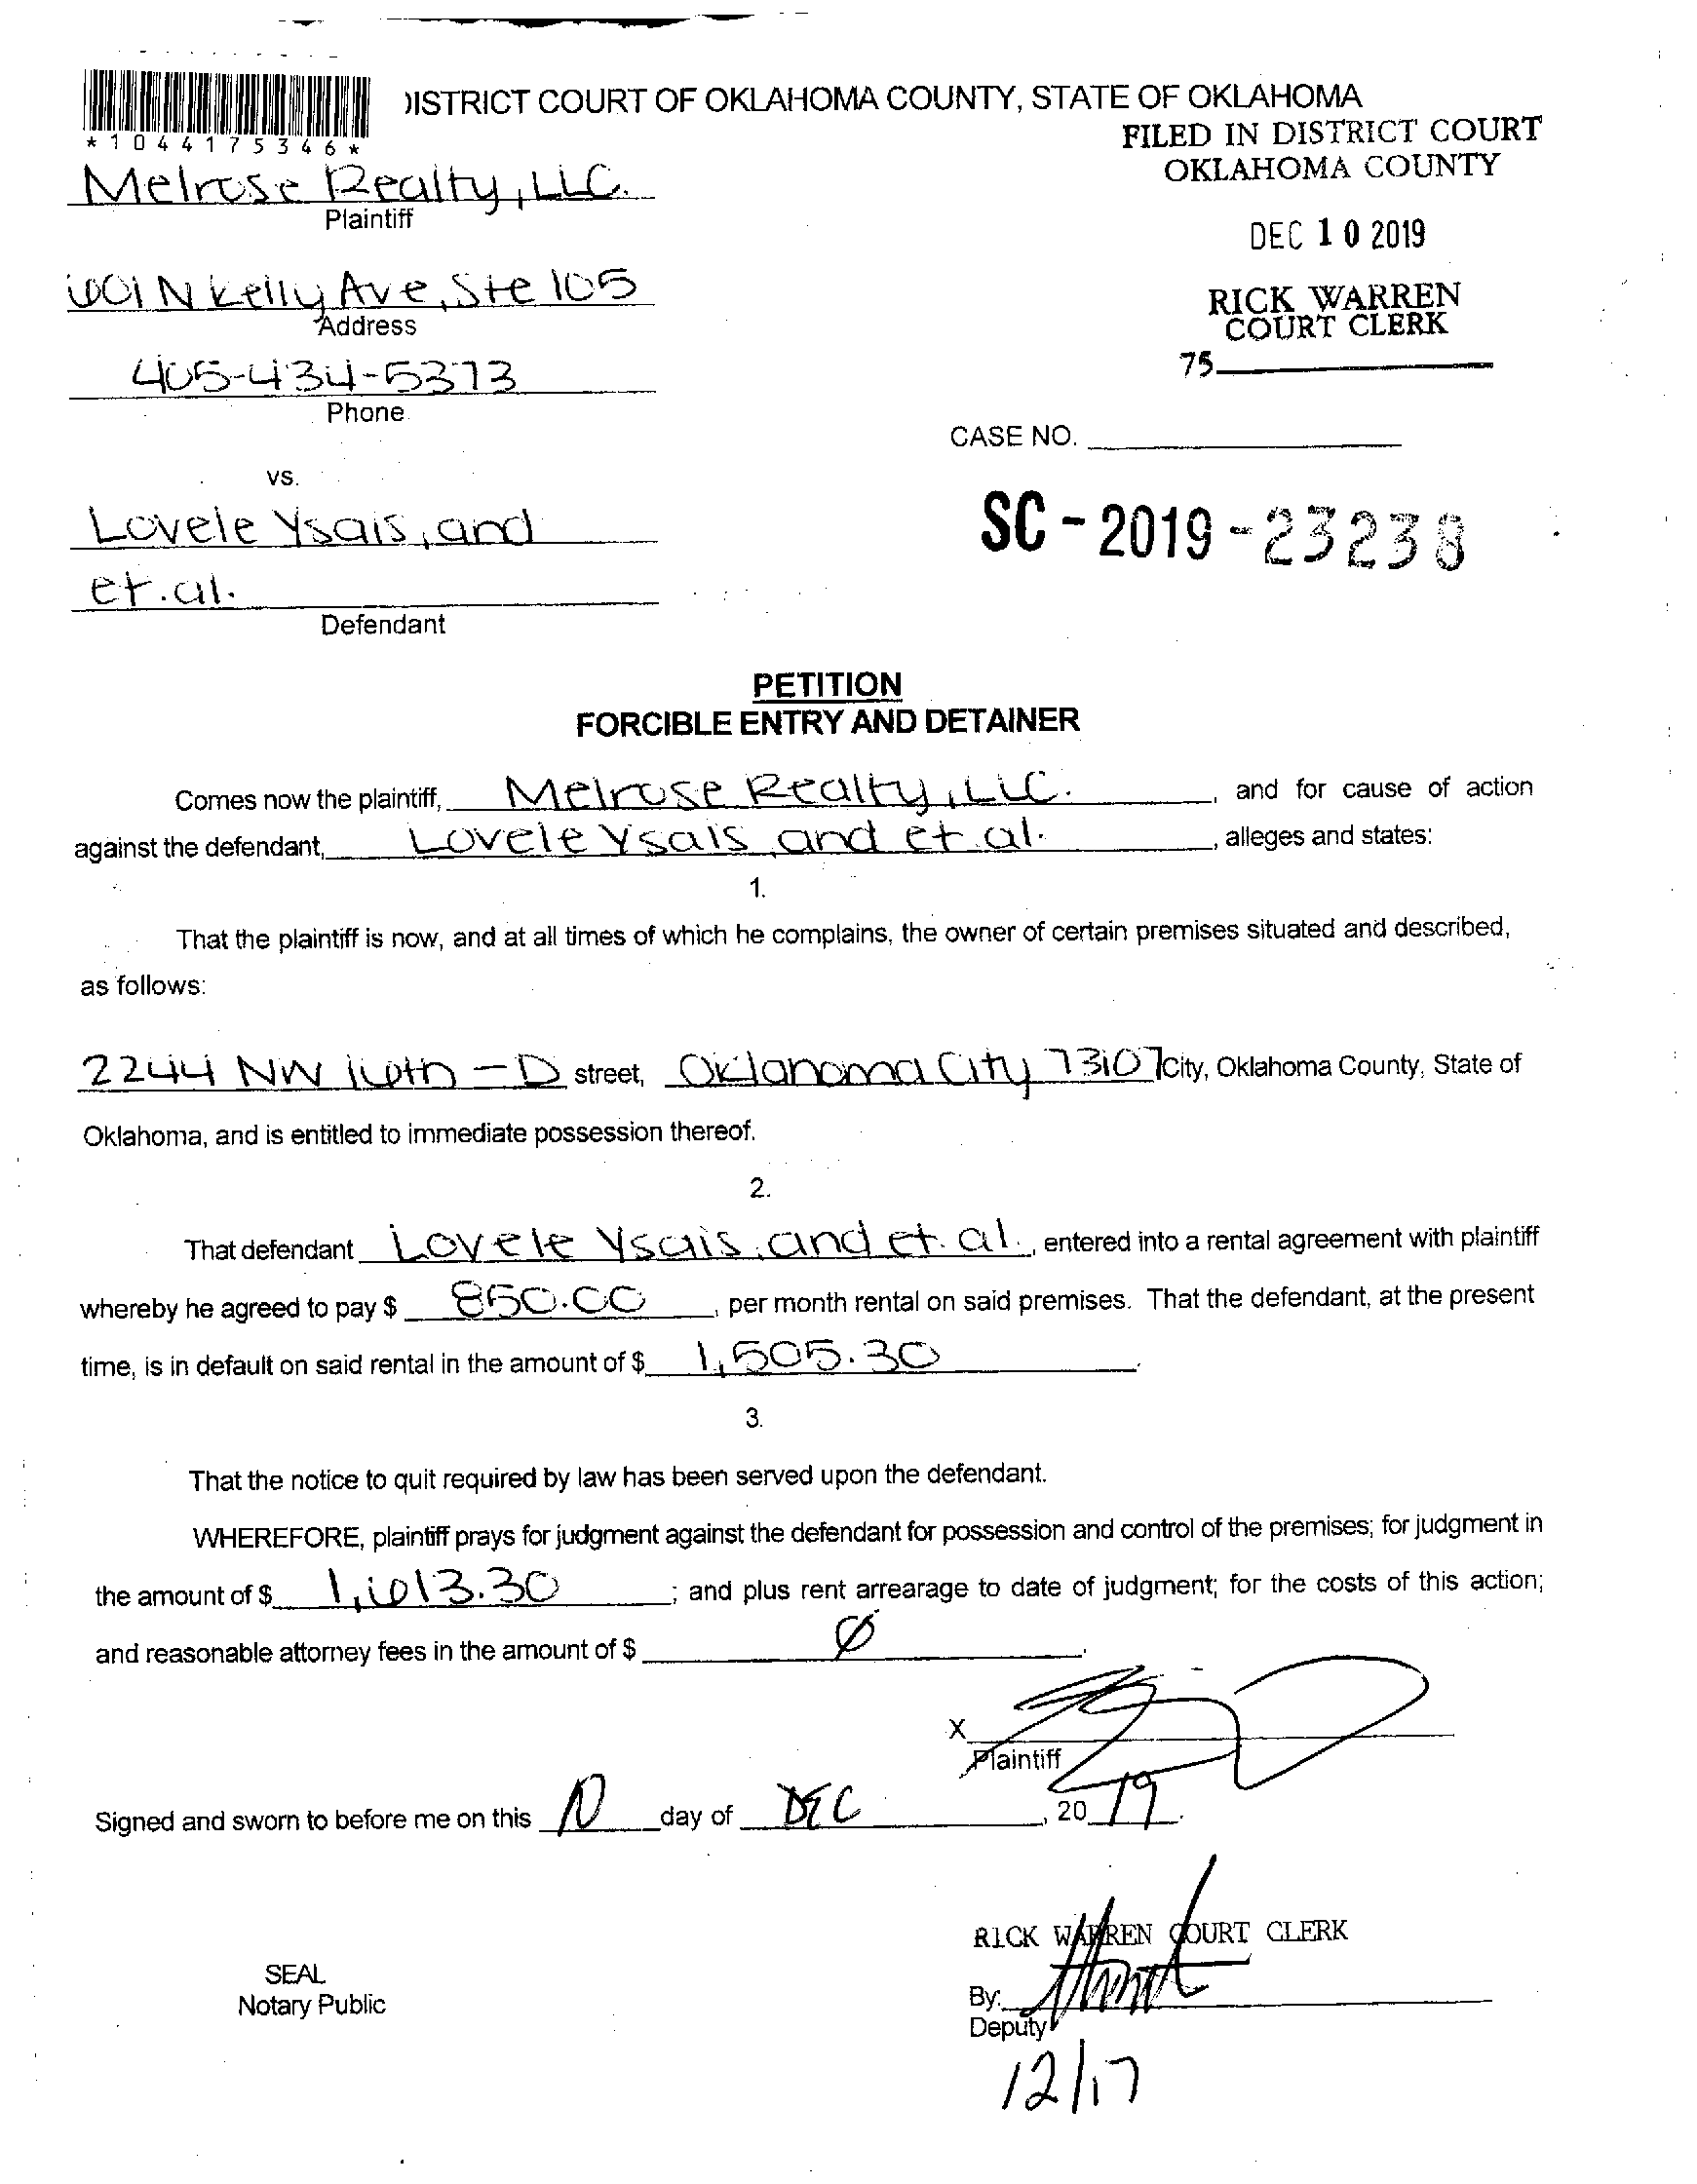 DISTRICT COURT OF OKLAHOMA COUNTY, STATE OF OKLAHOMA
*1044175346*
FILED IN DISTRICT COURT
OKLAHOMA COUNTY
Melrose Realty, LLC.
Plaintiff
DEC 10 2019
601 N Kelly Ave, Ste 105
Address
RICK WARREN
COURT CLERK
405-434-5373
75
Phone
CASE NO.
vs.
Lovele Ysais, and
et. al.
SC-2019-23238
Defendant
PETITION
FORCIBLE ENTRY AND DETAINER
Comes now the plaintiff, Melrose Realty, LLC. , and for cause of action
against the defendant, Lovele Ysais, and et. al. , alleges and states:
1.
That the plaintiff is now, and at all times of which he complains, the owner of certain premises situated and described,
as follows:
2244 NW 16th - D street, Oklahoma City 73107 City, Oklahoma County, State of
Oklahoma, and is entitled to immediate possession thereof.
2.
That defendant Lovele Ysais, and et. al. , entered into a rental agreement with plaintiff
whereby he agreed to pay $ 850.00 , per month rental on said premises. That the defendant, at the present
time, is in default on said rental in the amount of $ 1,505.30 .
3.
That the notice to quit required by law has been served upon the defendant.
WHEREFORE, plaintiff prays for judgment against the defendant for possession and control of the premises; for judgment in
the amount of $ 1,613.30 ; and plus rent arrearage to date of judgment; for the costs of this action;
and reasonable attorney fees in the amount of $ Ø .
X
Plaintiff
Signed and sworn to before me on this 10 day of DEC , 20 19 .
RICK WARREN COURT CLERK
SEAL
Notary Public
By:
Deputy
12/17